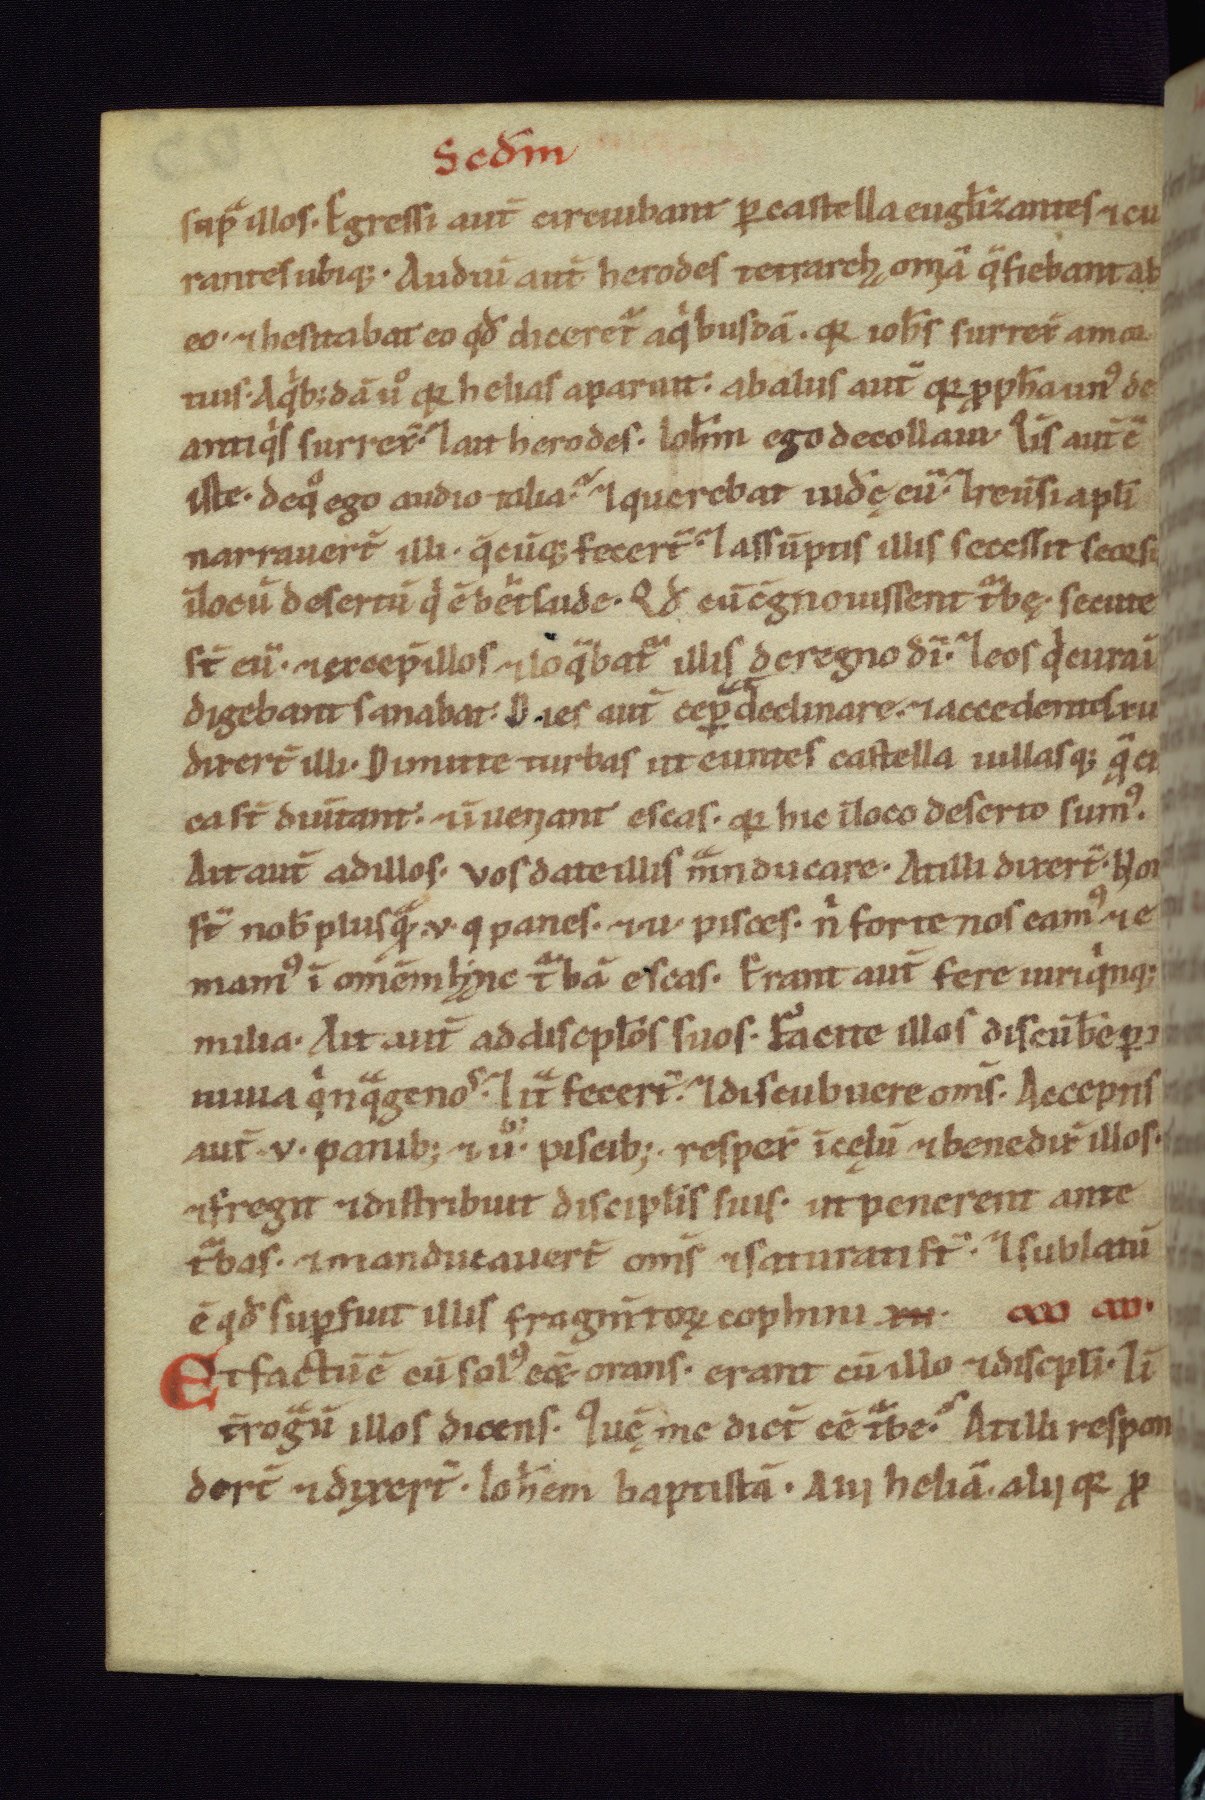 Scdm̄
sup̄ illos. Egressi aut̄ circuibant ꝑ castella eugl̄izantes ⁊ cu
rantes ubiq;. Audiu̅ aut̄ herodes tetrarch̨ om̄ia q̄ fiebant ab
eo. ⁊ hesitabat eo qđ diceret᷑ a qͥbusdā. qꝛ ioh̄s surrex̄ a mor
tuis. A qͥb;dā uͦ qꝛ helias aparuit. ab alus aut̄ qꝛ ꝓph̄a unꝰ de
antiqͥs surrex̄. ⁊ ait herodes. Ioh̄m ego decollaui. Qͥs aut̄ ē
iste. de qͦ ego audio talia. ⁊ querebat uid̄ę eū. ⁊ reūsi apl̄i
narrauert̄ illi. q̄cūq; fecert̄. ⁊ assūptis illis secessit seorsū
ī locū desertū qͥ ē bet̄saide. Qđ cū cḡnouissent t᷑bę. secute
st̄ eū. ⁊ excep̄ illos ⁊ loq̄bat᷑ illis de regno dī. ⁊ eos qͥ curaī
digebant sanabat. Dies aut̄ cep̄ declinare. ⁊ accedentes xii
dixert̄ illi. Dimitte turbas ut euntes castella uillasq; q̄ ci
ca st̄ diūtant. ⁊ īueniant escas. qꝛ hic ī loco deserto sumꝰ.
Ait aut̄ ad illos. vos date illis mͣnducare. At illi dixert̄. Non
st̄ nob̄ plusq̄. v. q panes. ⁊ .ii. pisces. n̄ forte nos eamꝰ ⁊ e
mamꝰ ī om̄em hͣnc t᷑bā escas. Erant aut̄ fere uiri qͥnq;
milia. Ait aut̄ ad discipl̄os suos. Facite illos discūb̄e ꝑ 
uiuia qͥnqͣgenos. ⁊ iͣt fecert̄. ⁊ discubuere om̄s. Acceptis
aut̄ .v. panib; ⁊ ii. piscib;. respex̄ ī cęlū ⁊ benedix̄ illos.
⁊ fregit ⁊ distribuit discipl̄is suis. ut ponerent ante
t᷑bas. ⁊ manducauert̄ om̄s ⁊ saturati st̄. ⁊ sublatū
ē qđ supfuit illis fragm̄toꝝ cophini xii.
Et factū ē cū solꝰ eēt orans. erant cū illo ⁊ discipl̄i. ⁊ ī
t̄rogͣū illos dicens. Quę me dict̄ eē t᷑be. At illi respon
dert̄ ⁊ dixert̄. Ioh̄em baptistā. Alij heliā. alij qꝛ ꝓ